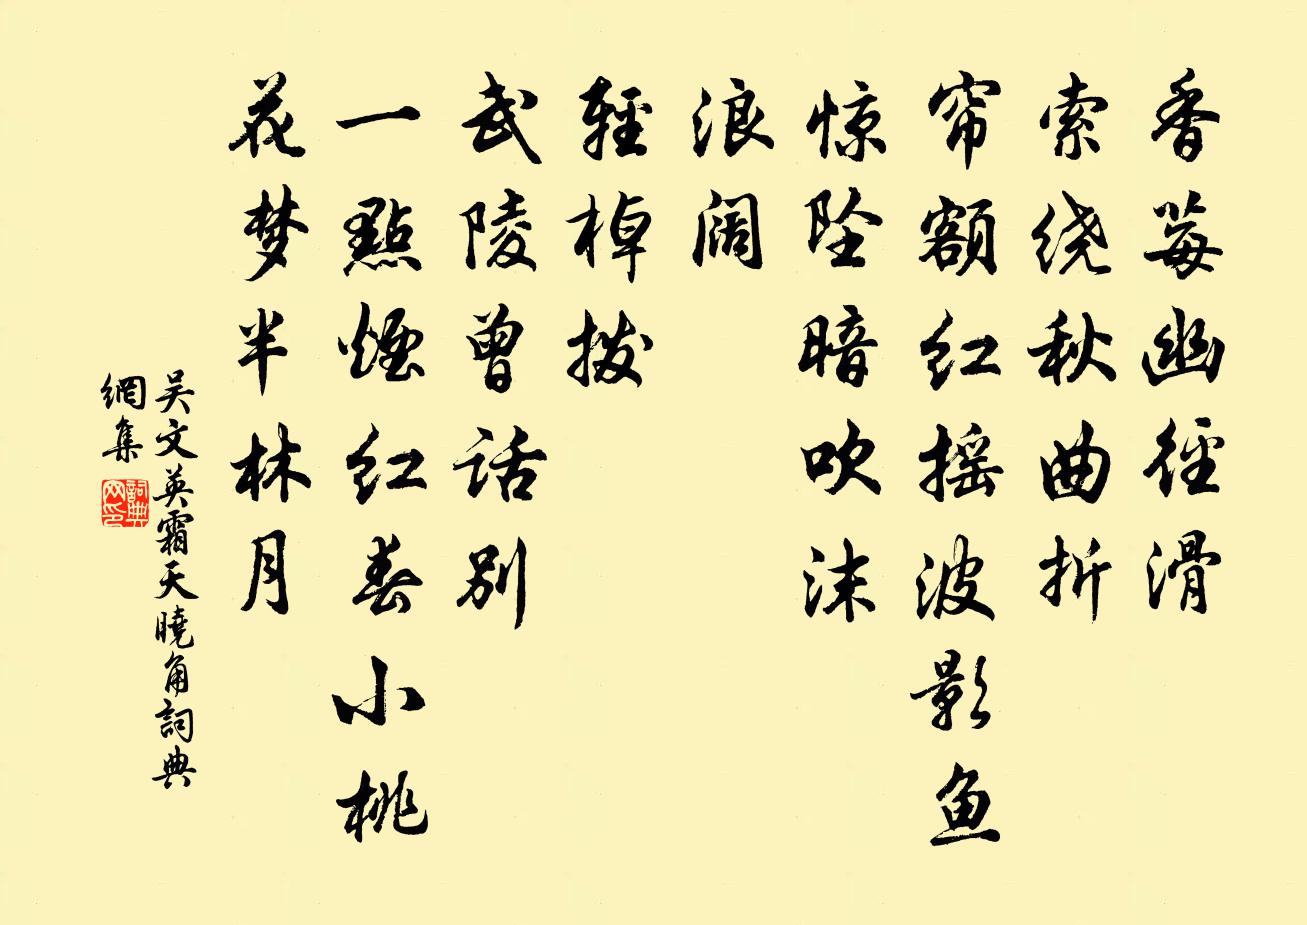 香莓幽径滑
索绕秋曲折
帘额红摇波影鱼
惊坠暗吹沫
浪阔
輕棹拨
武陵曾话别
一點煙红春小桃
花梦半林月
吴文英霜天曉角詞典
網集
詞典
网印